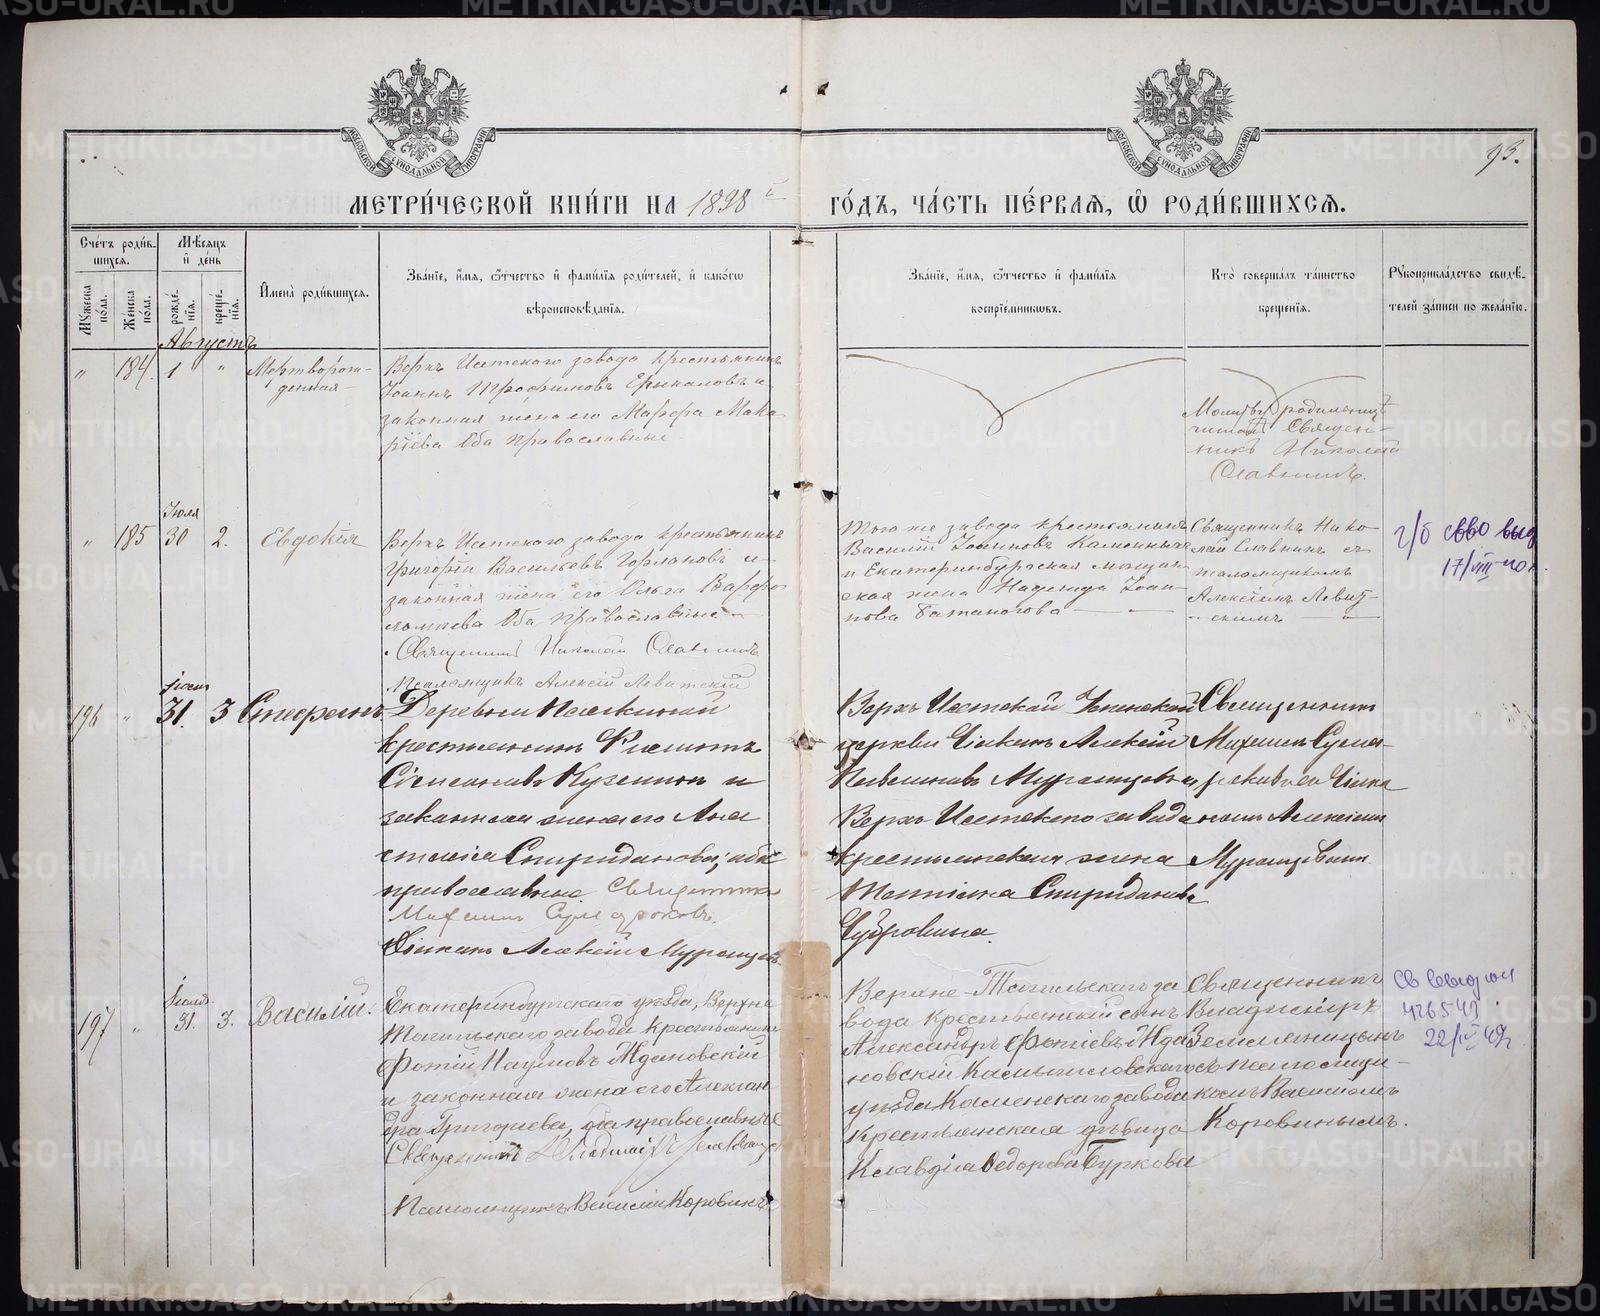 METRIKI.GASO-URAL.RU
93.
МОСКОВСКОЙ СУНОДАЛЬНОЙ ТИПОГРАФІИ
МОСКОВСКОЙ СУНОДАЛЬНОЙ ТИПОГРАФІИ
МЕТРИ́ЧЕСКОЙ КНИ́ГИ НА 1898 й ГО́ДЪ, ЧА́СТЬ ПЕ́РВАЯ, Ѿ РОДИ́ВШИХСЯ.
Сче́тъ роди́вшихся.
Му́жеска по́ла.
Же́нска по́ла.
Мѣ́сяцъ и де́нь
рожде́нія.
креще́нія.
Имена̀ роди́вшихся.
Зва́ніе, и́мя, ѻ́тчество и фами́лія роди́телей, и како́гѡ
вѣроисповѣ́данія.
Зва́ніе, и́мя, ѻ́тчество и фами́лія
воспріе́мникѡвъ.
Кто̀ соверша́лъ та́инство
креще́нія.
Рꙋкоприкла́дство свидѣ́телей за́писи по жела́нію.
Августъ
" 184. 1 " Мертворож-
денная
Верхъ Исетскаго завода крестьянинъ
Іоаннъ Трофимовъ Ерыкаловъ и
законная жена его Марфа Мака-
ріева Оба православные
Молитву родильницѣ
читалъ Священ-
никъ Николай
Славнинъ.
Іюля
" 185 30 2. Евдокія
Верхъ Исетскаго завода крестьянинъ
Григорій Васильевъ Горлановъ и
законная жена его Ольга Варфо-
ломеева Оба православные
Священникъ Николай Славнинъ
Псаломщикъ Алексій Левитскій
Того же завода крестьянинъ
Василій Іоанновъ Каменныхъ
и Екатеринбургская мѣщан-
ская жена Надежда Іоан-
нова Батаногова
Священникъ Нико-
лай Славнинъ съ
псаломщикомъ
Алексіемъ Левит-
скимъ
г/б св-во выд
17/VIII-40 г.
Іюля
196 " 31. 3 Стефанъ
Деревни Палкиной
крестьянинъ
Стефановъ Кузминъ и
законная жена его Ана
стасія Спиридонова; оба
православные. Священникъ
Михаилъ Сумароковъ.
Діаконъ Алексій Мурзинцевъ
Верхъ Исетской Успенской
церкви Діаконъ Алексій
Верхъ Исетского завода
крестьянская жена
Татіана Спиридонова
Чудовина.
Священникъ
Михаилъ Сума-
роковъ съ Діако
номъ Алексіемъ
Іюля
197 " 31. 3. Василій.
Екатеринбургскаго уѣзда, Верхне
Тагильскаго завода крестьянинъ
Фотій Наумовъ Ждановскій
и законная жена его Алексан
дра Григорьева, оба православные
Священникъ Владиміръ Земляницынъ
Псаломщикъ Василій Коровинъ
Верхне-Тагильскаго за
вода крестьянскій сынъ
Александръ Фотіевъ Жда
новскій Камышловскаго
уѣзда Каменскаго завода
крестьянская дѣвица
Клавдіа Ѳедорова Буркова
Священникъ
Владиміръ
Земляницынъ
съ псаломщи-
комъ Василіемъ
Коровинымъ.
426543
22/IV 49г